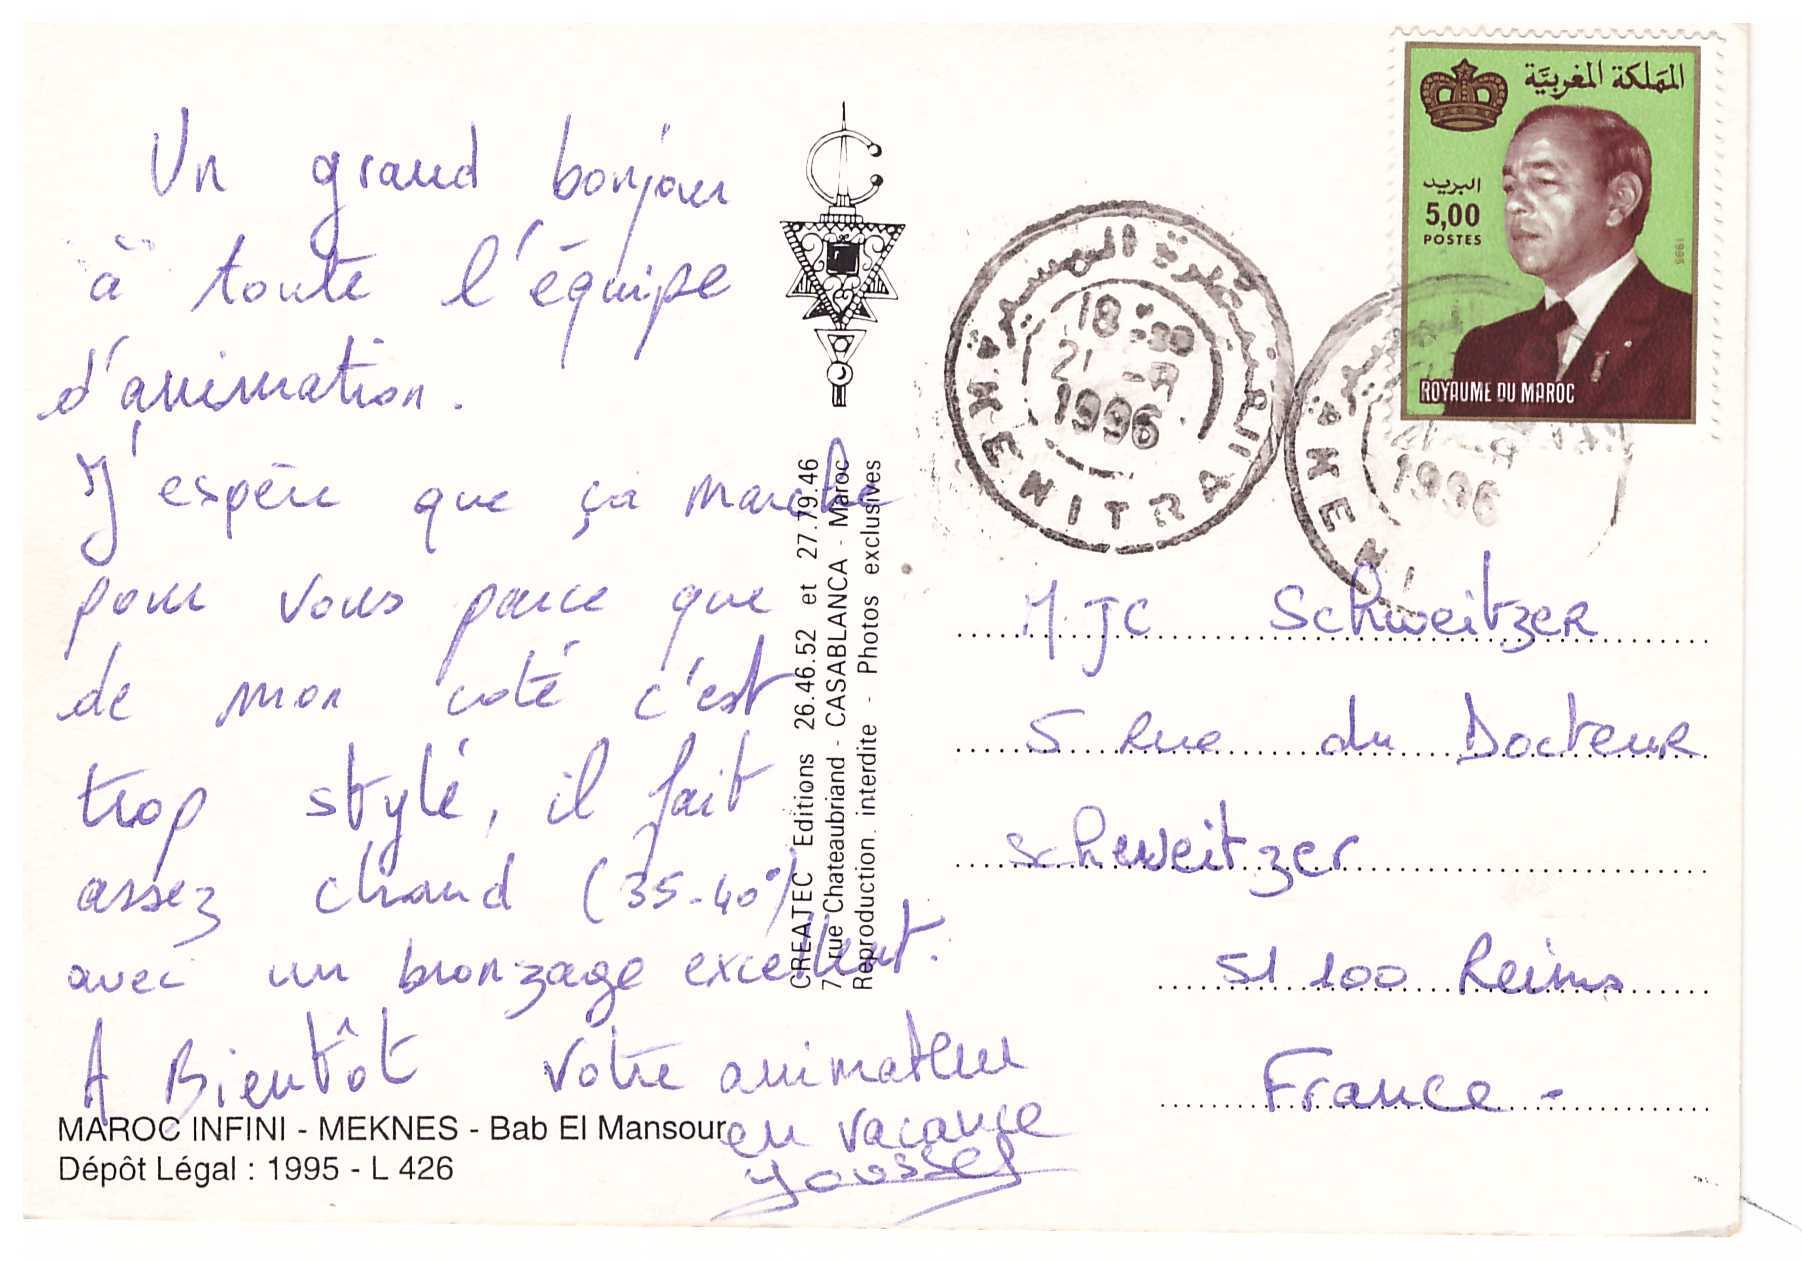 Un grand bonjour
à toute l'équipe
d'animation.
J'espère que ça marche
pour vous parce que
de mon coté c'est
trop stylé, il fait
assez chaud (35-40°)
avec un bronzage excellent.
A Bientôt votre animateur
en vacance
Youssef
MAROC INFINI - MEKNES - Bab El Mansour
Dépôt Légal : 1995 - L 426
CREAJEC Editions 26.46.52 et 27.79.46
7, rue Chateaubriand - CASABLANCA - Maroc
Reproduction interdite - Photos exclusives
18-30
21 -8
1996
KENITRA
1996
المملكة المغربية
البريد
5,00
POSTES
1995
ROYAUME DU MAROC
MJC Schweitzer
5 Rue du Docteur
scheweitzer
51 100 Reims
France -